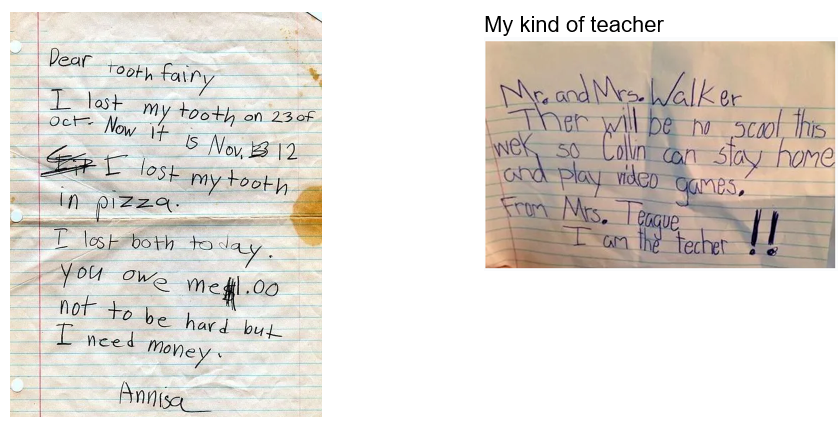 Dear tooth fairy
I lost my tooth on 23 of
oct. Now it is Nov. 12
I lost my tooth
in pizza.
I lost both today.
you owe me $1.00
not to be hard but
I need money.
Annisa
My kind of teacher
Mr. and Mrs. Walker
Ther will be no scool this
wek so Collin can stay home
and play video games.
From Mrs. Teague
I am the techer !!